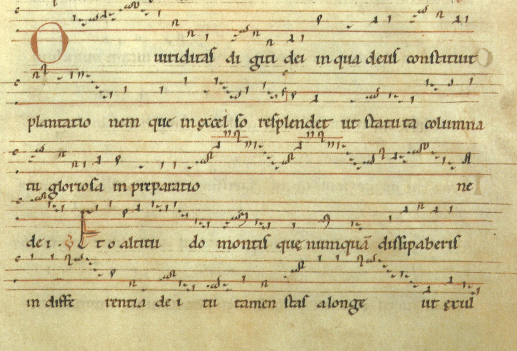 O uiriditas digiti dei in qua deus constituit
plantatio nem que in excel so resplendet ut statuta columna
tu gloriosa in preparatio ne
dei. Et o altitu do montis que nunquā dissipaberis
in diffe rentia dei tu tamen stas a longe ut exul